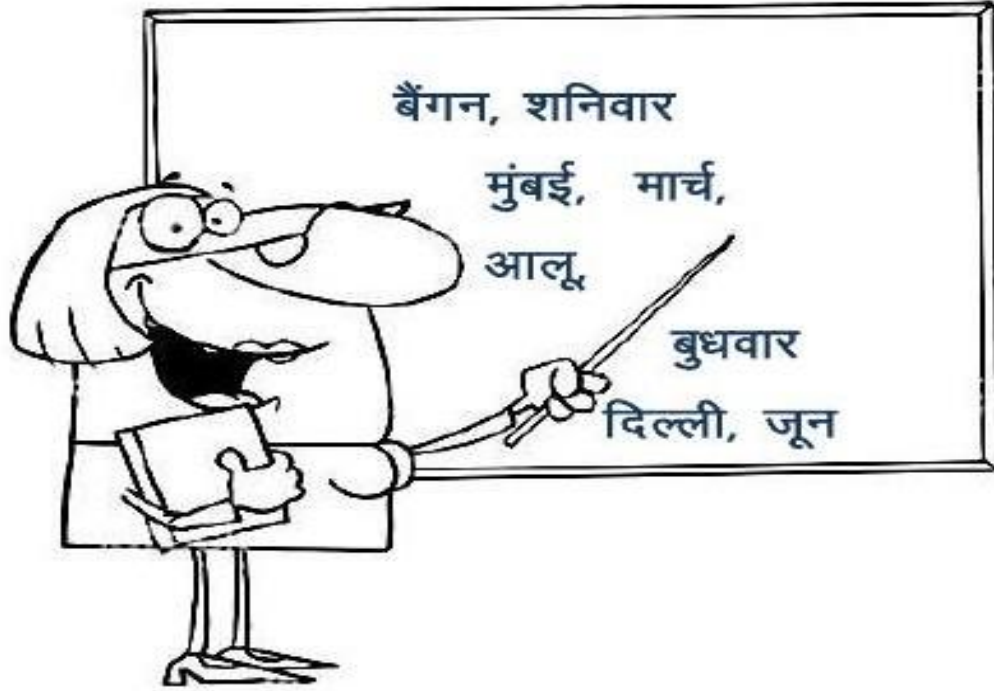 बैंगन, शनिवार
मुंबई, मार्च,
आलू,
बुधवार
दिल्ली, जून